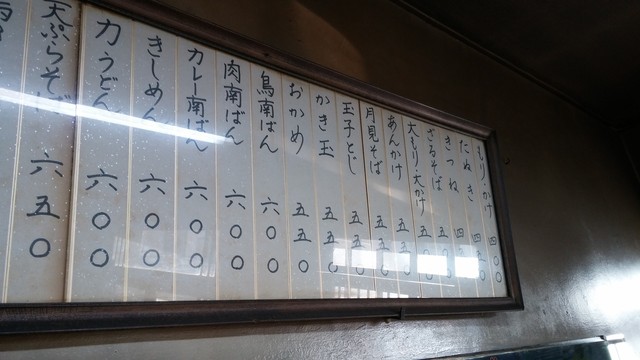 もり・かけ 四〇〇
たぬき 四
きつね
ざるそば 五
大もり・大かけ 五
あんかけ 五
月見そば 五五
玉子とじ 五五〇
かき玉 五五〇
おかめ 五五〇
鳥南ばん 六〇〇
肉南ばん 六〇〇
カレー南ばん 六〇〇
きしめん 六〇〇
力うどん 六〇〇
天ぷらそば 六五〇